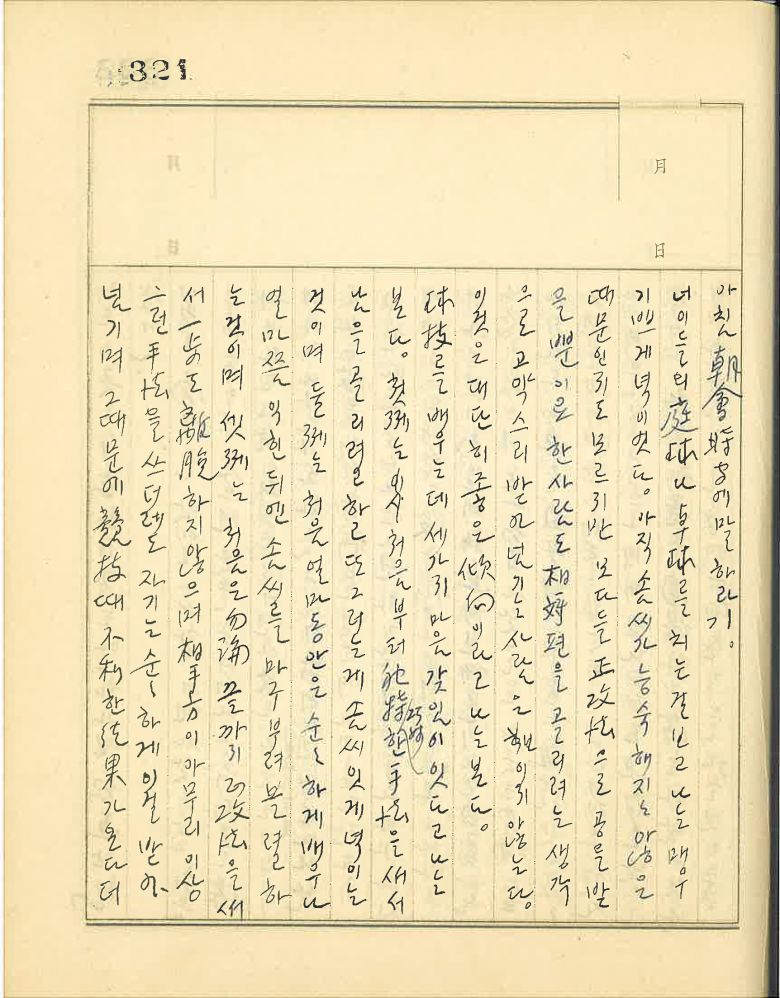 321
月
日
아침 朝會時에 말하라기。
너이들의 庭球나 卓球를 치는걸 보고 나는 매우
기쁘게 녁이엇다。아직 솜씨가 능숙해지는 않은
때문인지도 모르지만 모다들 正攻法으로 공을 받
을뿐이은 한사람도 相對편을 골리려는 생각
으로 고약스리 받어 넘기는 사람은 뵈이지 않는다。
이것은 대단히 좋은 傾向이라고 나는 본다。
球技를 배우는데 세가지 마음갖임이 잇다고 나는
본다。첫재는 처음부터 奇巧한 手法을 써서
남을 골리려고 하고 또 그러는게 솜씨잇게 녁이는
것이며 둘재는 처음 얼마동안은 순〻하게 배우나
얼마쯤 익힌뒤엔 솜씨를 마구 부려볼려 하
는것이며 셋재는 처음은 勿論 끝까지 正攻法을 써
서 一步도 離脫하지 않으며 相手方이 아무리 이상
一런 手法을 쓰더래도 자기는 순〻하게 이걸 받아
넘기며 그때문에 競技때 不利한 結果가 온다더